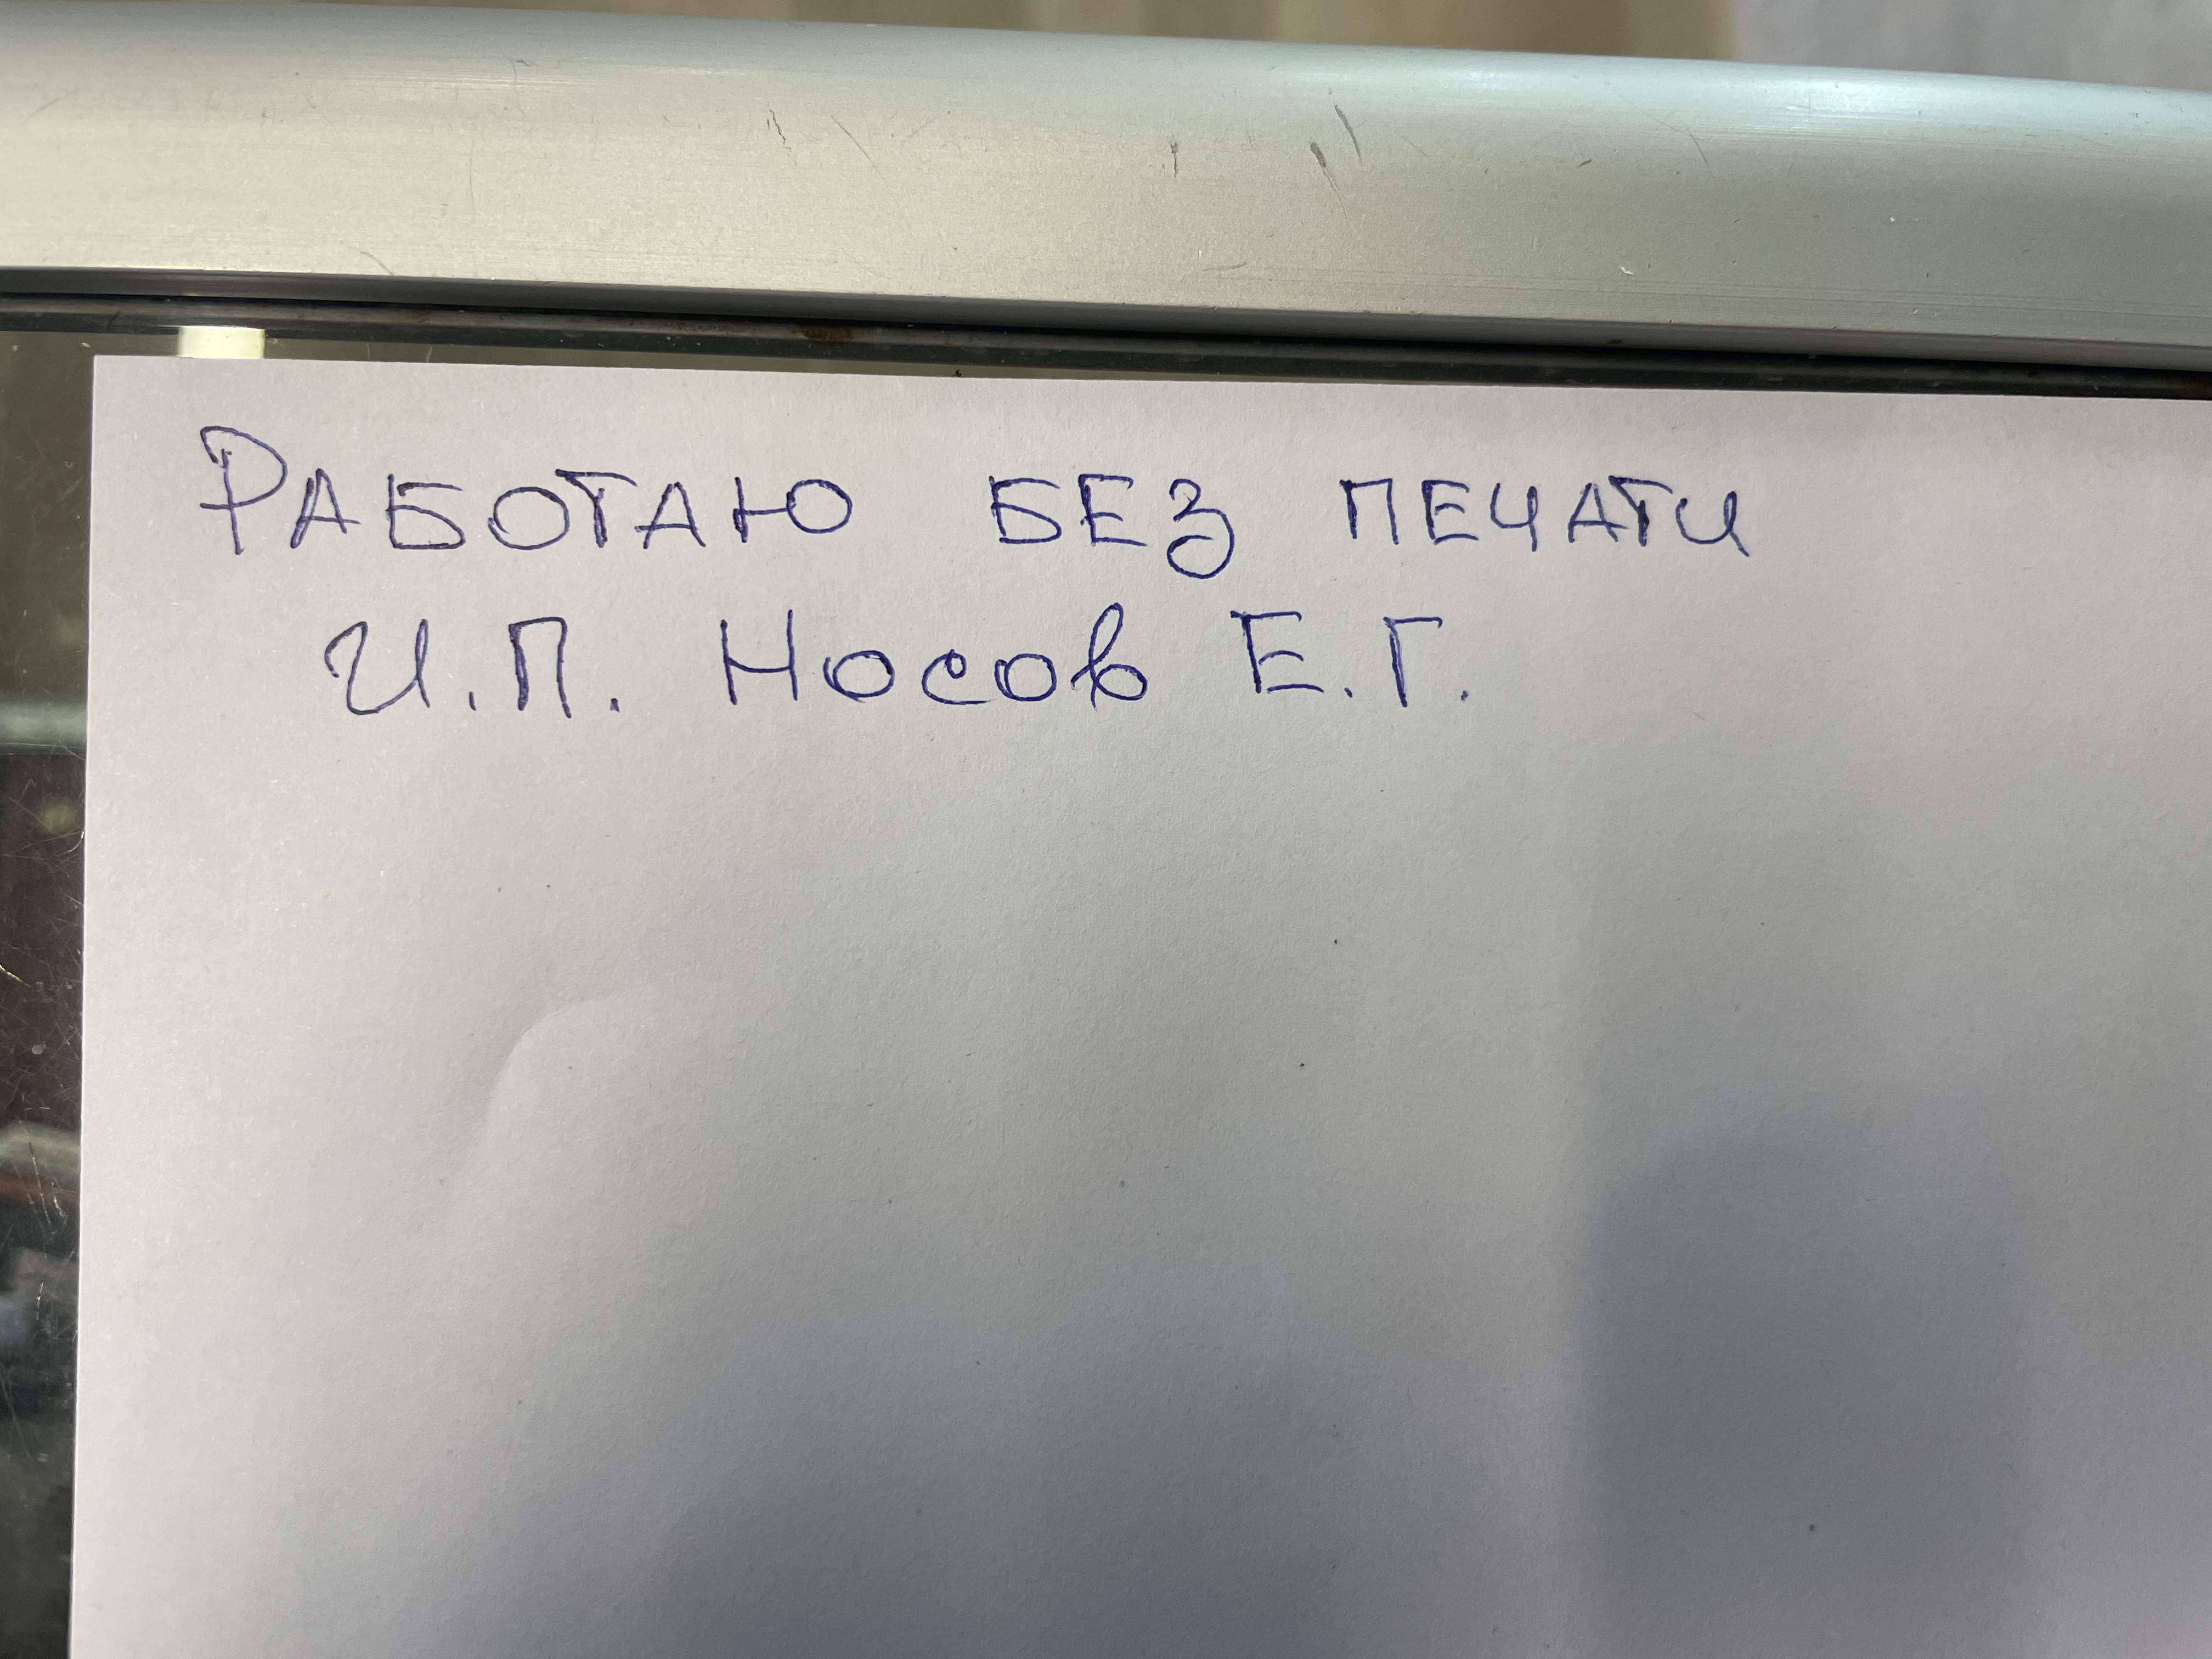 Работаю без печати
И.П. Носов Е.Г.